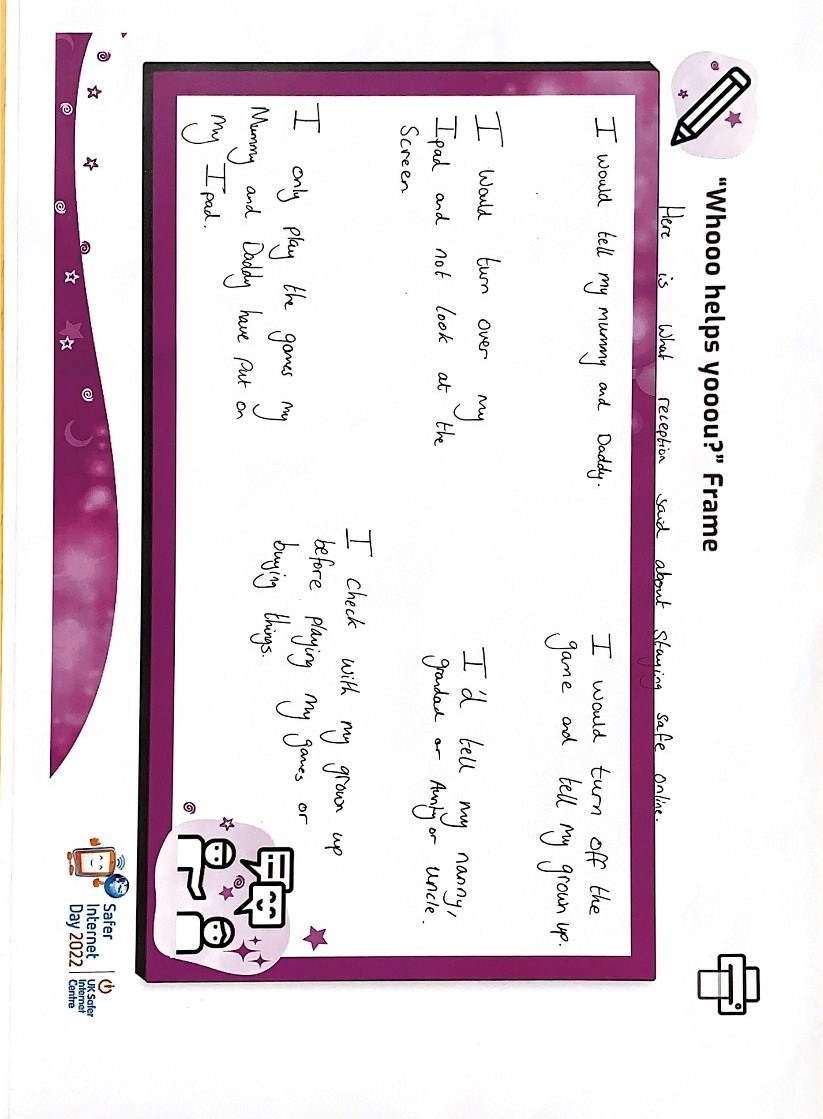 "Whooo helps yooou?" Frame
Here is What reception said about Staying safe online.
I would tell my mummy and Daddy.
I would turn off the
game and tell my grown up.
I Would turn over my
Ipad and not look at the
Screen
I'd tell my nanny,
grandad or Aunty or uncle.
I only play the games my
Mummy and Daddy have Put on
my Ipad.
I check with my grown up
before playing my games or
buying things.
Safer
Internet
Day 2022
UK Safer
Internet
Centre